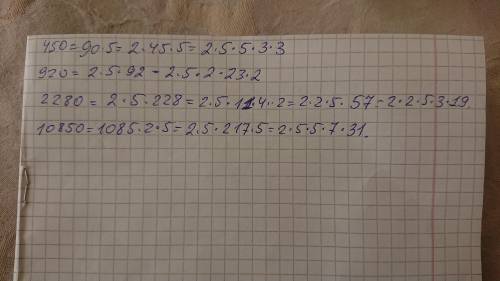 450=90·5=2·45·5=2·5·5·3·3
920=2·5·92-2·5·2·23·2
2280=2·5·228=2·5·114·2=2·2·5·57-2·2·5·3·19.
10850=1085·2·5=2·5·217·5=2·5·5·7·31.